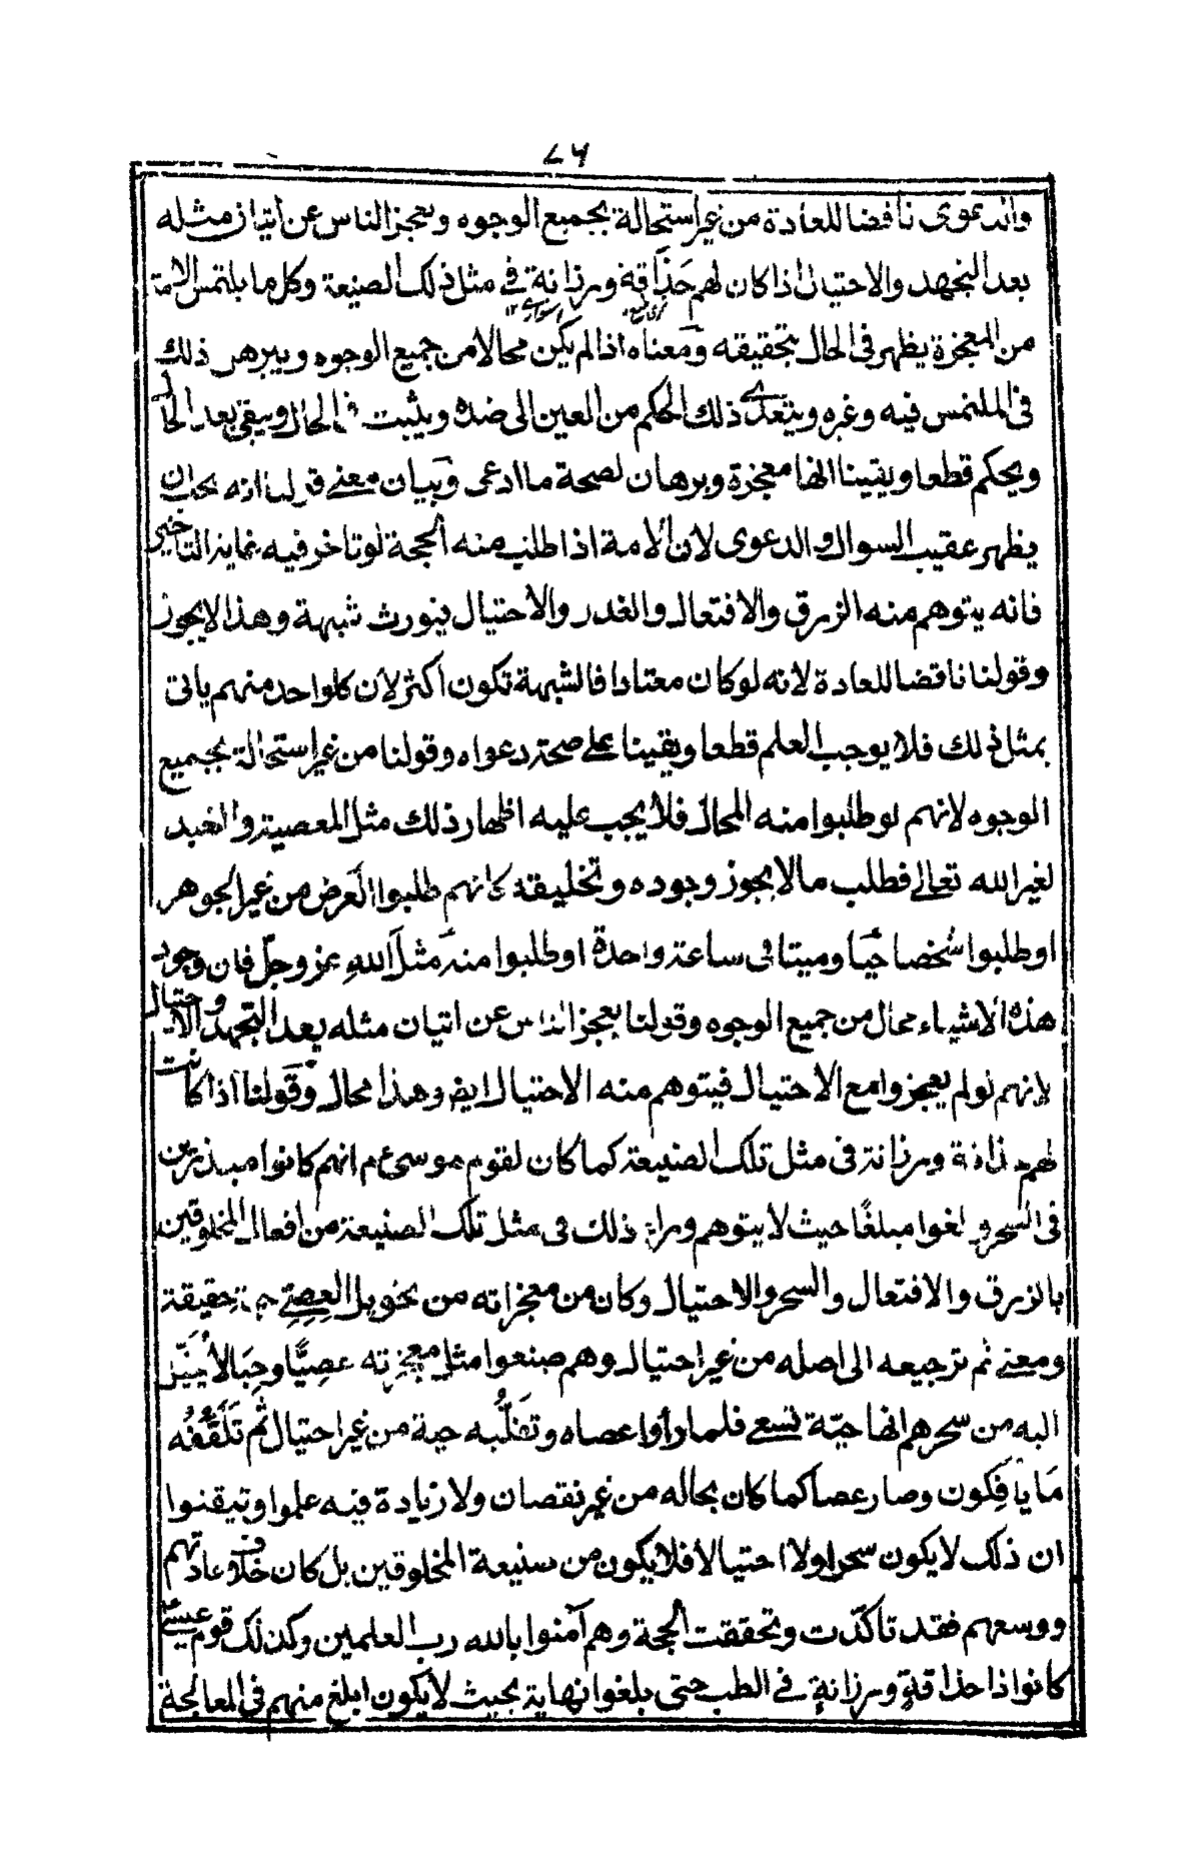 ٧٦
والدعوى ناقضا للعادة من غير استحالة بجميع الوجوه ويعجز الناس عن اتيان مثله
بعد التجهد والاحتيال اذا كان لهم حَذَاقة ورزانة فى مثل ذلك الصنيعة وكل ما يلتمس الامة
من المعجزة يظهر فى الحال بتحقيقه ومعناه اذا لم يكن محالا من جميع الوجوه ويبرهن ذلك
فى الملتمس فيه وغيره ويتعدى ذلك الحكم من العين الى ضده ويثبت فى الحال ويبقى بعد الحال
ويحكم قطعا ويقينا انها معجزة وبرهان لصحة ما ادعى وبيان معنى قولنا انه يجب ان
يظهر عقيب السوال والدعوى لان الامة اذا طلب منه الحجة لو تاخر فيه غاية التاخير
فانه يتوهم منه الزرق والافتعال والغدر والاحتيال فيورث شبهة وهذا لا يجوز
وقولنا ناقضا للعادة لانه لو كان معتادا فالشبهة تكون اكثر لان كل واحد منهم ياتى
بمثل ذلك فلا يوجب العلم قطعا ويقينا على صحة دعواه وقولنا من غير استحالة بجميع
الوجوه لانهم لو طلبوا منه المحال فلا يجب عليه اظهار ذلك مثل المعصية والتعبد
لغير الله تعالى فطلب ما لا يجوز وجوده وتخليقه كانهم طلبوا العرض من غير الجوهر
او طلبوا شخصا حيّا وميتا فى ساعة واحدة او طلبوا منه مثل الله عز وجلّ فان وجود
هذه الاشياء محال من جميع الوجوه وقولنا يعجز الناس عن اتيان مثله بعد التجهد والاحتيال
لانهم لو لم يعجزوا مع الاحتيال فيتوهم منه الاحتيال ايضا وهذا محال وقولنا اذا كانت
لهم حذاقة ورزانة فى مثل تلك الصنيعة كما كان لقوم موسى ع م انهم كانوا مبذرين
فى السحر وبلغوا مبلغًا حيث لا يتوهم وراء ذلك فى مثل تلك الصنيعة من افعال المخلوقين
بالزرق والافتعال والسحر والاحتيال وكان من معجزاته من تحويل العصى حية حقيقة
ومعنى ثم ترجيعه الى اصله من غير احتيال وهم صنعوا مثل معجزته عصيًّا وحِبَالا يُخَيّل
اليه من سحرهم انها حيّة تسعى فلما رأوا عصاه وتقلّبه حية من غير احتيال ثُم تَلَقّفُه
مَا يأفِكون وصار عصا كما كان بحاله من غير نقصان ولا زيادة فيه علموا وتيقنوا
ان ذلك لا يكون سحرا ولا احتيالا فلا يكون من صنيعة المخلوقين بل كان خلاف عادتهم
ووسعهم فقد تاكدّت وتحققت الحجة وهم آمنوا بالله رب العلمين وكذلك قوم عيسىٰ
كانوا ذا حذاقةٍ ورزانةٍ فى الطب حتى بلغوا نهاية بحيث لا يكون ابلغ منهم فى المعالجة